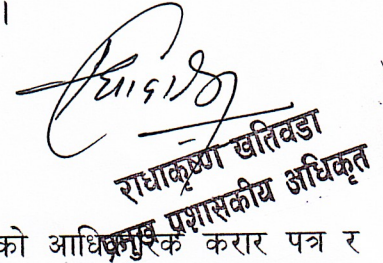 ।
राधाकृष्ण खतिवडा
प्रमुख प्रशासकीय अधिकृत
को आधिकारिक करार पत्र र